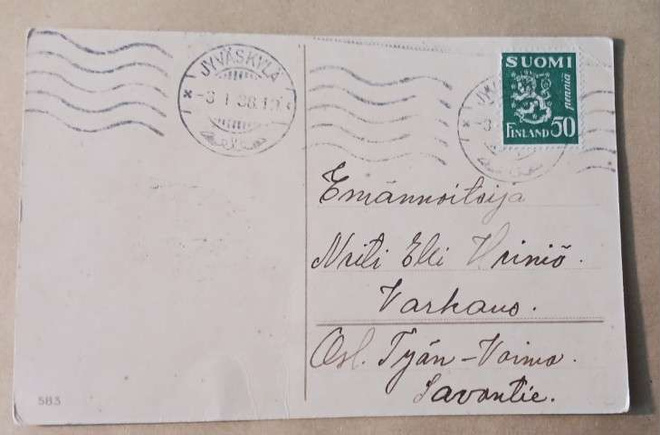 JYVÄSKYLÄ
SUOMI
pennia
FINLAND 50
Emännöitsijä
Neiti Elli Vriniö.
Varkaus.
Os. Työn-Voima.
Savontie.
583